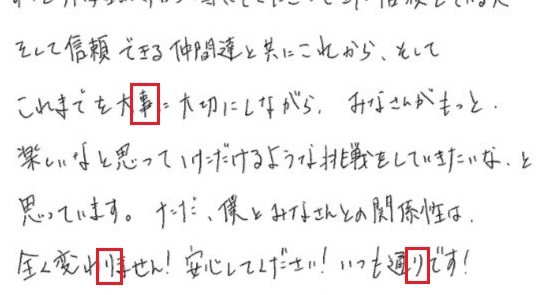 そして信頼できる仲間達と共にこれから、そして
これまでを大事に大切にしながら、みなさんがもっと、
楽しいなと思っていただけるような挑戦をしていきたいな、と
思っています。ただ、僕とみなさんとの関係性は、
全く変わりません!安心してください!いつも通りです!